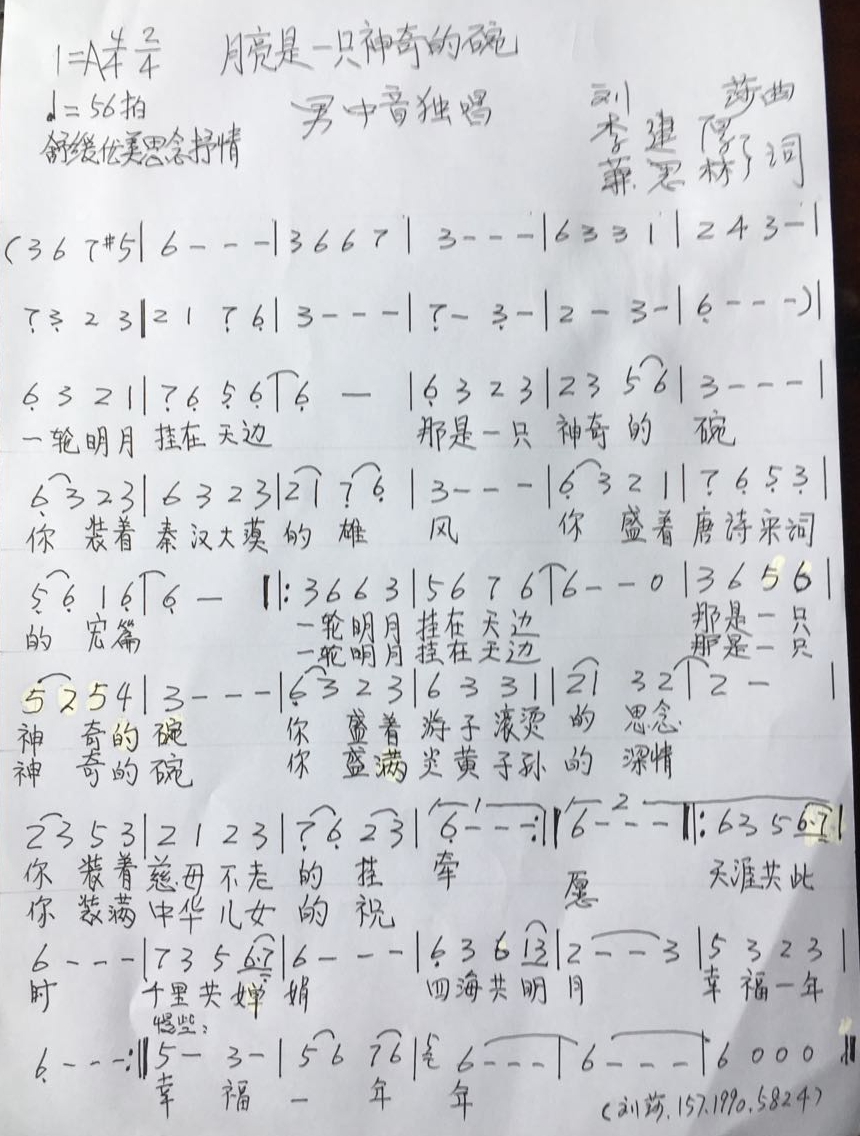 1=A 4/4 2/4 月亮是一只神奇的碗
♩=56拍 男中音独唱 刘 莎曲
舒缓优美思念抒情 李建
林 词
(3 6 7 #5 | 6 - - - | 3 6 6 7 | 3 - - - | 6 3 3 1 | 2 4 3 - |
7̣ 3̣ 2 3 | 2 1 7̣ 6̣ | 3 - - - | 7̣ - 3̣ - | 2 - 3 - | 6̣ - - - ) |
6̣ 3 2 1 | 7̣ 6̣ 5̣ 6̣ | 6̣ — | 6̣ 3 2 3 | 2 3 5 6 | 3 - - - |
一轮明月 挂在天边 那是一只 神奇的 碗
6̣ 3 2 3 | 6 3 2 3 | 2 1 7̣ 6̣ | 3 - - - | 6̣ 3 2 1 | 7̣ 6̣ 5̣ 3̣ |
你 装着 秦汉大漠 的 雄 风 你 盛着 唐诗宋词
5̣ 6̣ 1 6̣ | 6̣ — ‖: 3 6 6 3 | 5 6 7 6 | 6 - - 0 | 3 6 5 6 |
的 宏篇 一轮明月 挂在天边 那是一只
一轮明月 挂在天边 那是一只
5 2 5 4 | 3 - - - | 6̣ 3 2 3 | 6 3 3 1 | 2 1 3 2 | 2 - |
神 奇的碗 你 盛着 游子滚烫 的 思念
神 奇的碗 你 盛满 炎黄子孙 的 深情
2 3 5 3 | 2 1 2 3 | 7̣ 6̣ 2 3 | 1 6̣ - - - :‖ 2 6 - - - ‖: 6 3 5 6·7 |
你 装着 慈母不老 的 挂 牵 天涯共此
你 装满 中华儿女 的 祝 愿
6 - - - | 7 3 5 6·7 | 6 - - - | 6̣ 3 6 1 3 | 2 - - 3 | 5 3 2 3 |
时 千里共婵 娟 四海共明 月 幸福一年
慢些:
6̣ - - - :‖ 5 - 3 - | 5 6 7 6 | 6 - - - | 6 - - - | 6 0 0 0 ‖
幸 福 一 年 年 (刘莎.157.1990.5824)